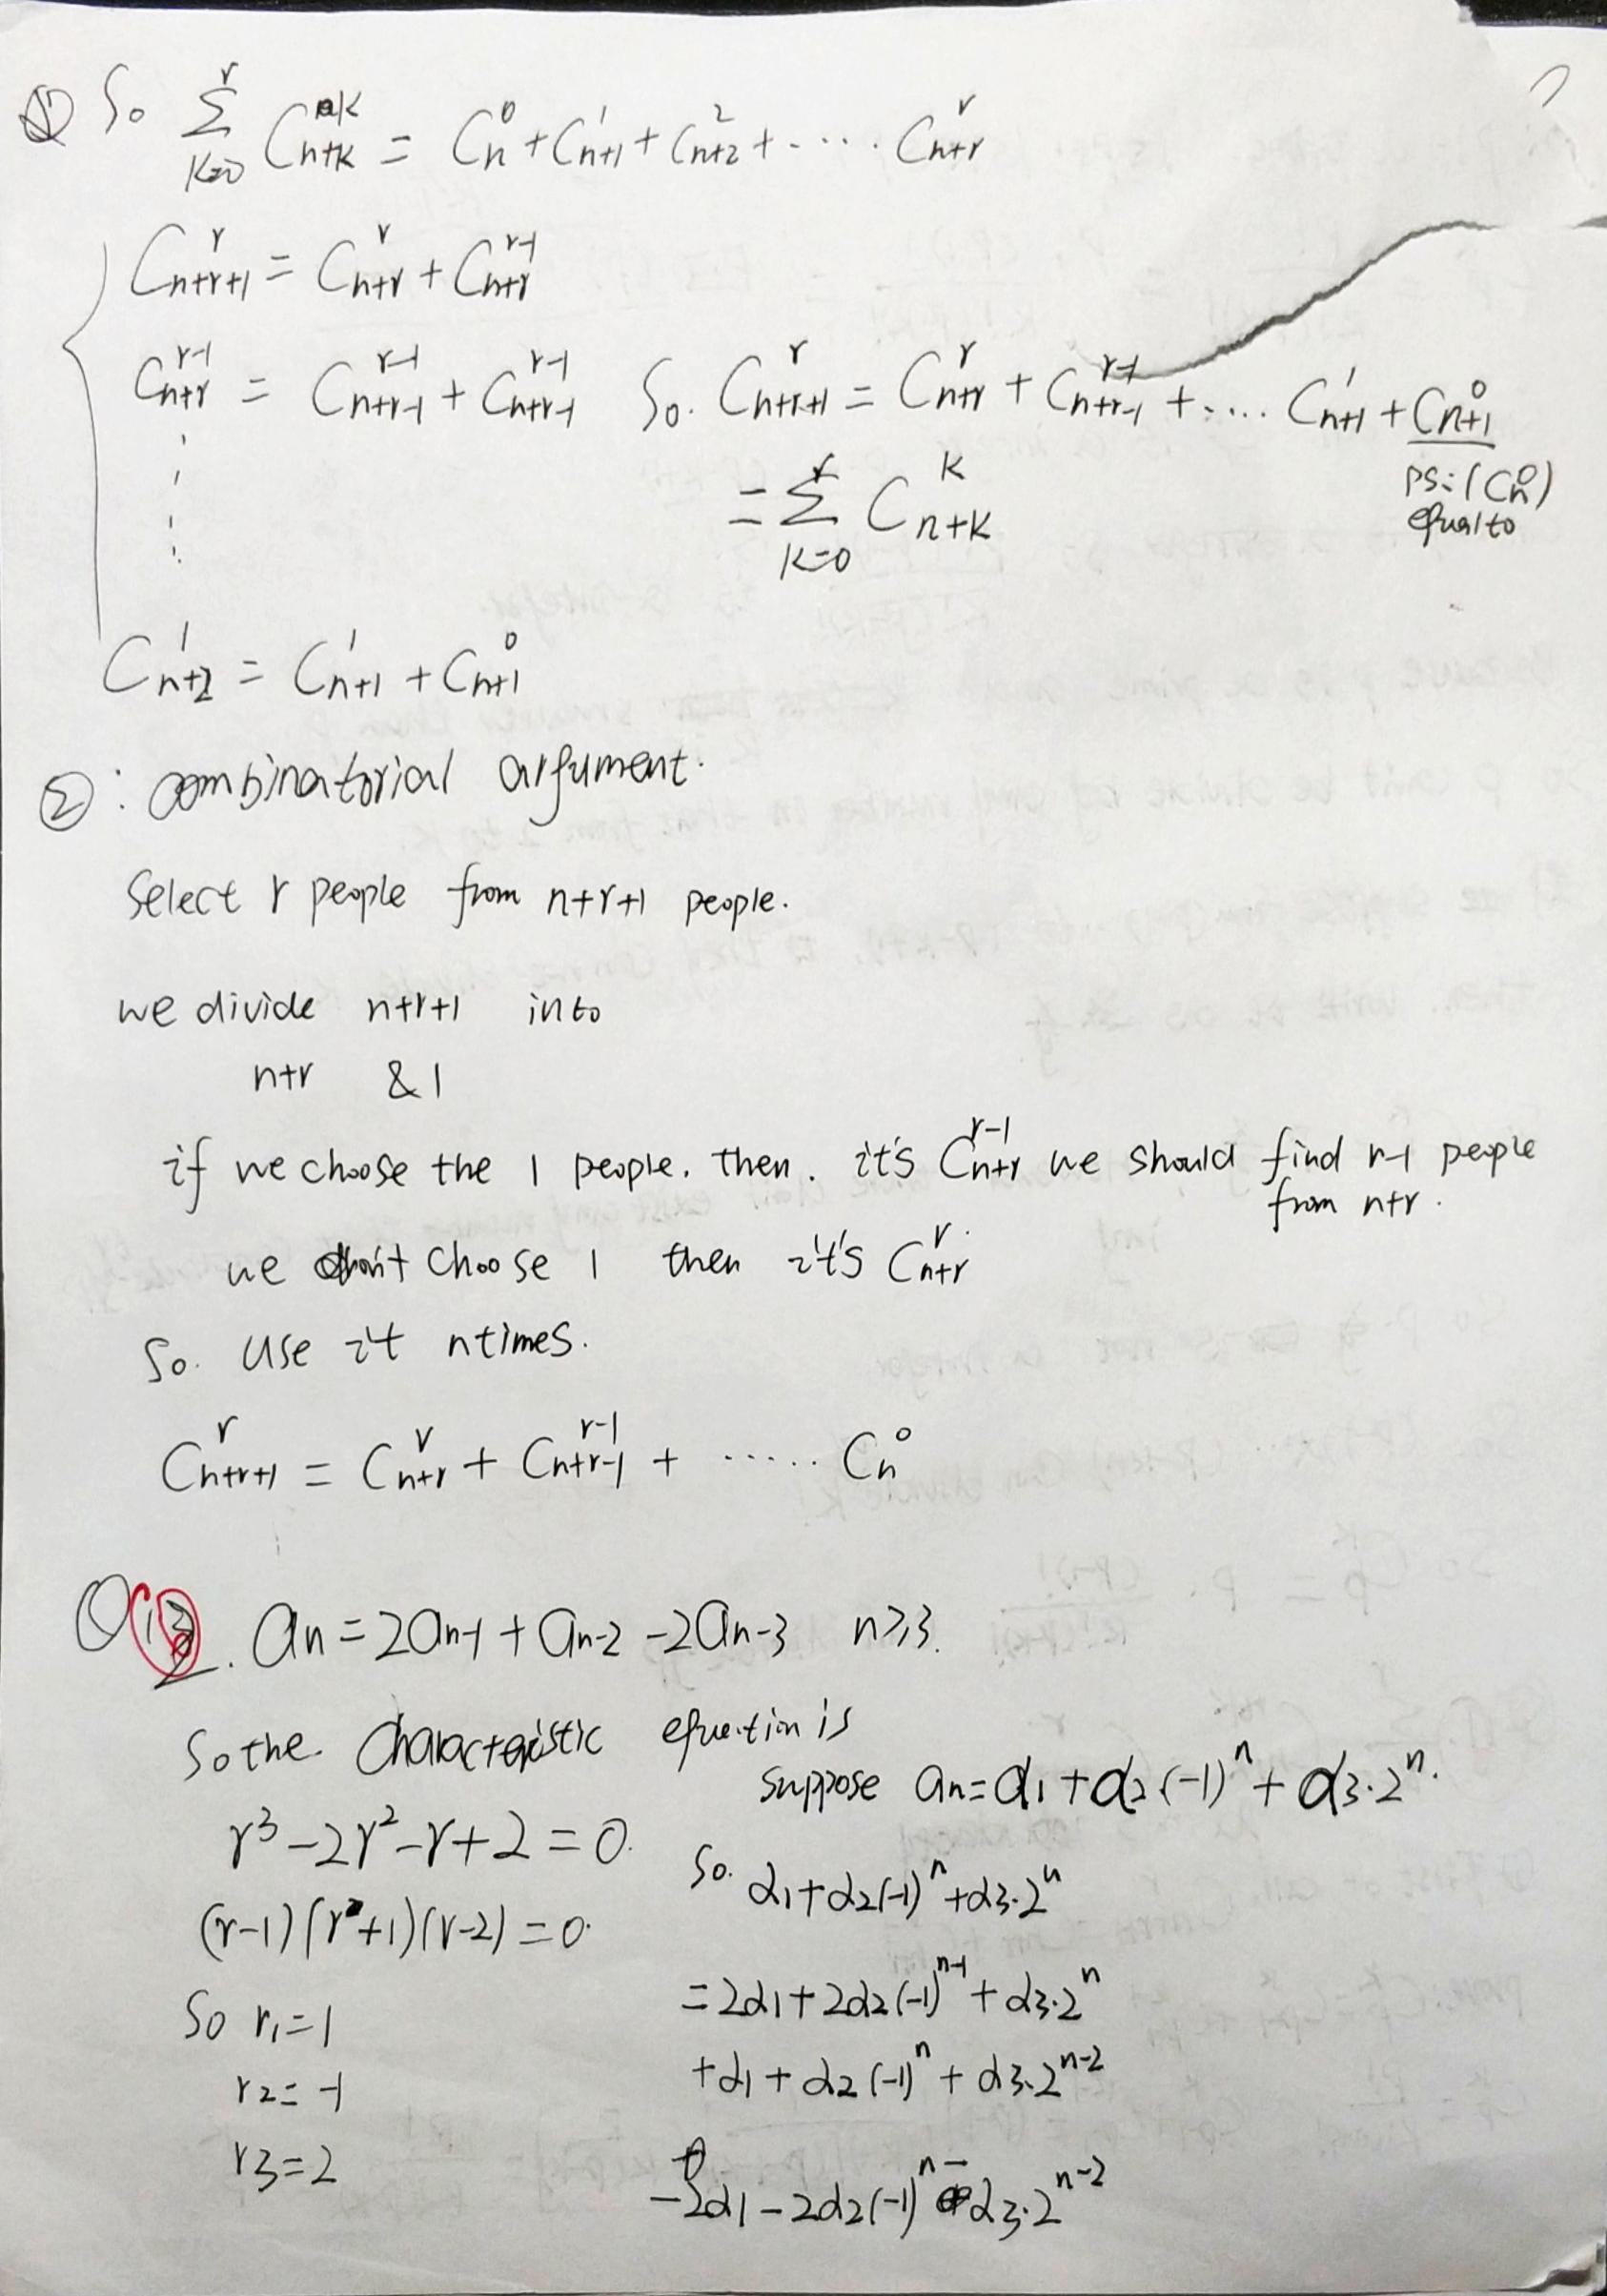 ① So ∑_{k=0}^{r} C_{n+k}^{k} = C_n^0 + C_{n+1}^1 + C_{n+2}^2 + ..... C_{n+r}^r
C_{n+r+1}^r = C_{n+r}^r + C_{n+r}^{r-1}
C_{n+r}^{r-1} = C_{n+r-1}^{r-1} + C_{n+r-1}^{r-1} So. C_{n+r+1}^r = C_{n+r}^r + C_{n+r-1}^{r-1} + .... C_{n+1}^1 + C_{n+1}^0
= ∑_{k=0}^{r} C_{n+k}^k
ps: (C_n^0)
equal to
C_{n+2}^1 = C_{n+1}^1 + C_{n+1}^0
②: combinatorial argument.
Select r people from n+r+1 people.
we divide n+r+1 into
n+r & 1
if we choose the 1 people. then. it's C_{n+r}^{r-1} we should find r-1 people
from n+r.
we don't choose 1 then it's C_{n+r}^r.
So. use it n times.
C_{n+r+1}^r = C_{n+r}^r + C_{n+r-1}^{r-1} + ..... C_n^0
a_n = 2a_{n-1} + a_{n-2} - 2a_{n-3} n≥3.
So the characteristic equation is
r^3 - 2r^2 - r + 2 = 0.
(r-1)(r+1)(r-2) = 0.
So r_1 = 1
r_2 = -1
r_3 = 2
suppose a_n = α_1 + α_2(-1)^n + α_3·2^n.
So. α_1 + α_2(-1)^n + α_3·2^n
= 2α_1 + 2α_2(-1)^{n-1} + α_3·2^n
+ α_1 + α_2(-1)^n + α_3·2^{n-2}
- 2α_1 - 2α_2(-1)^{n-} α_3·2^{n-2}